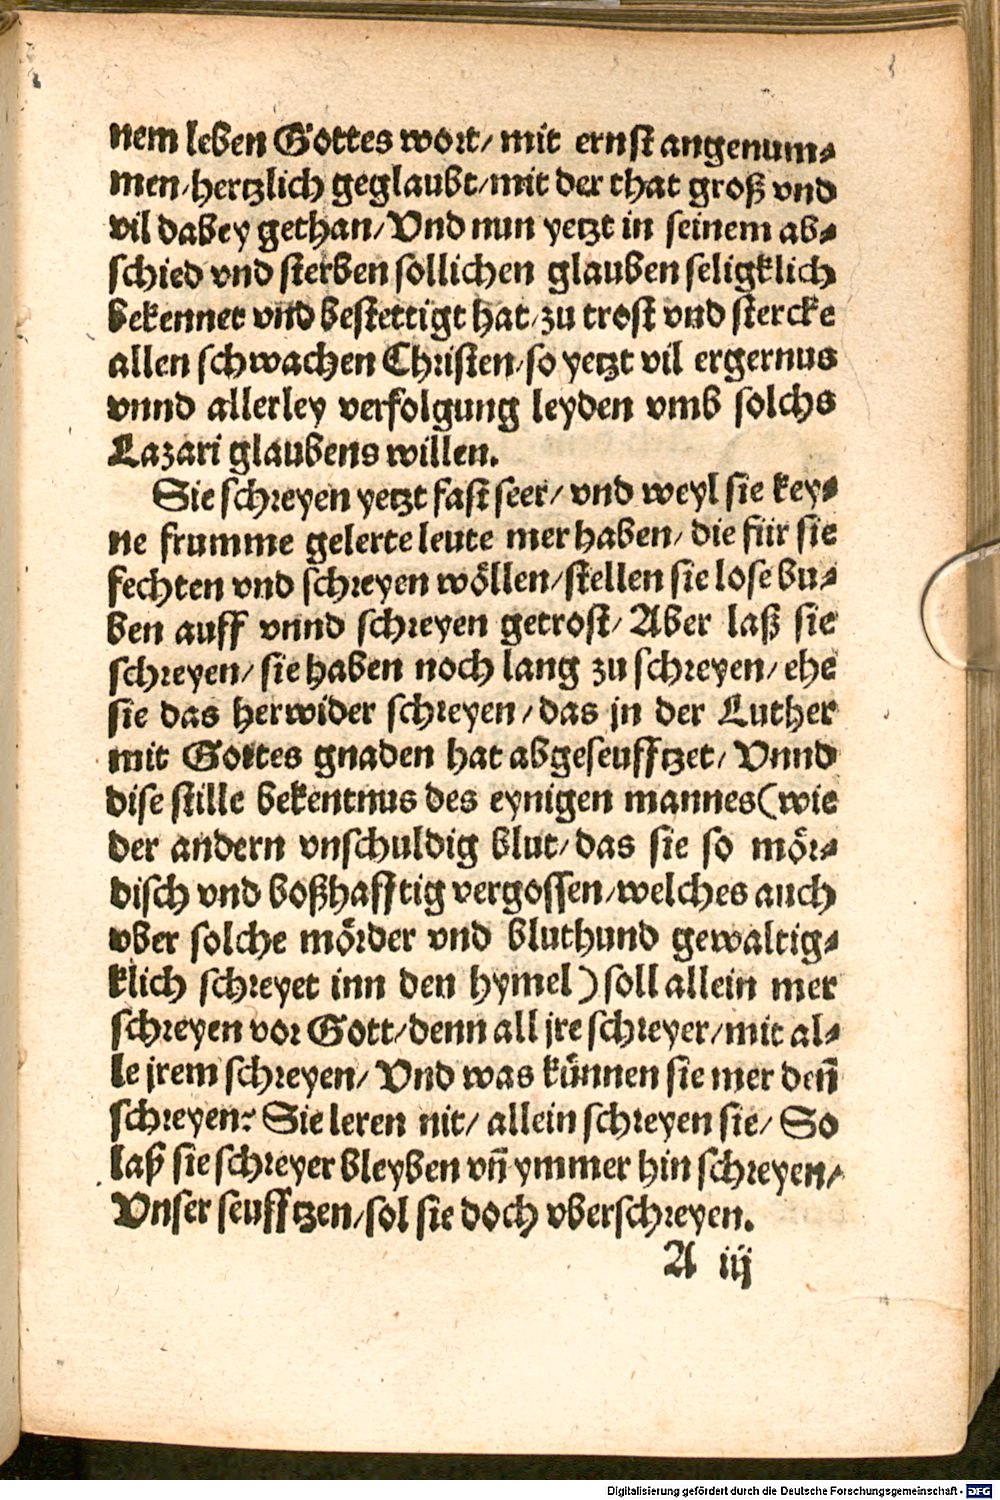 nem leben Gottes wort/ mit ernst angenum-
men/hertzlich geglaubt/mit der that groß vnd
vil dabey gethan/ Vnd nun yetzt in seinem ab-
schied vnd sterben sollichen glauben seligklich
bekennet vnd bestettigt hat/zu trost vnd stercke
allen schwachen Christen/so yetzt vil ergernus
vnnd allerley verfolgung leyden vmb solchs
Lazari glaubens willen.
Sie schreyen yetzt fast seer/ vnd weyl sie key-
ne frumme gelerte leute mer haben/ die für sie
fechten vnd schreyen wöllen/stellen sie lose bu-
ben auff vnnd schreyen getrost/ Aber laß sie
schreyen/ sie haben noch lang zu schreyen/ ehe
sie das herwider schreyen/das jn der Luther
mit Gottes gnaden hat abgeseufftzet/ Vnnd
dise stille bekentnus des eynigen mannes(wie
der andern vnschuldig blut/das sie so mör-
disch vnd boßhafftig vergossen/welches auch
vber solche mörder vnd bluthund gewaltig-
klich schreyet inn den hymel)soll allein mer
schreyen vor Gott/denn all jre schreyer/mit al-
le jrem schreyen/ Vnd was künnen sie mer deñ
schreyen? Sie leren nit/ allein schreyen sie/ So
laß sie schreyer bleyben vñ ymmer hin schreyen/
Vnser seufftzen/sol sie doch vberschreyen.
A iij
Digitalisierung gefördert durch die Deutsche Forschungsgemeinschaft - DFG